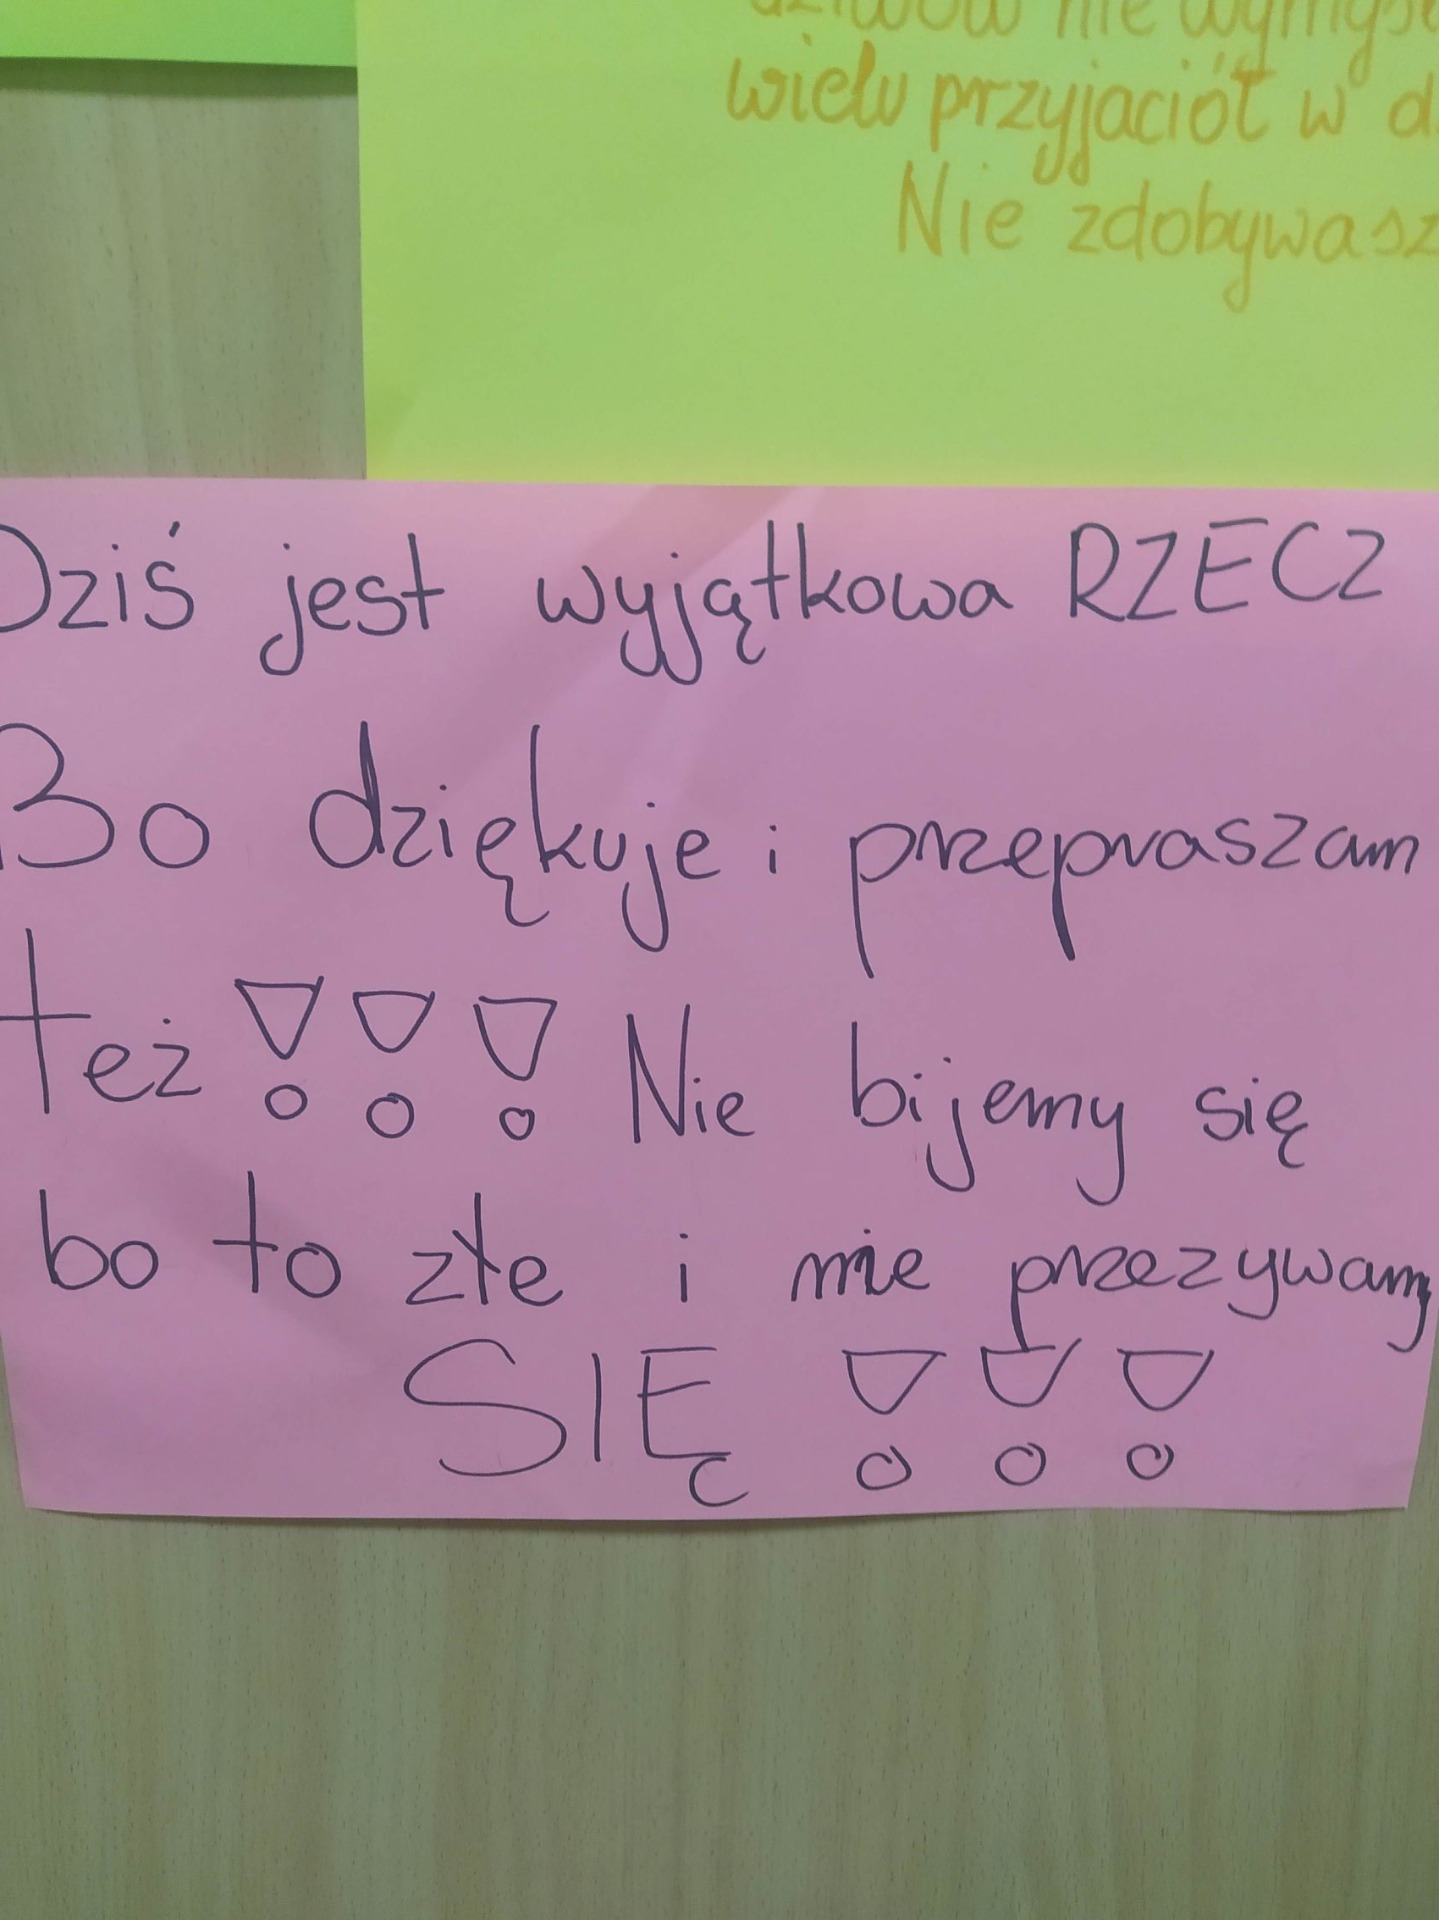 wielu przyjaciół w
Nie zdobywasz
Dziś jest wyjątkowa RZECZ
Bo dziękuje i przepraszam
też !!! Nie bijemy się
bo to złe i nie przezywamy
SIĘ !!!